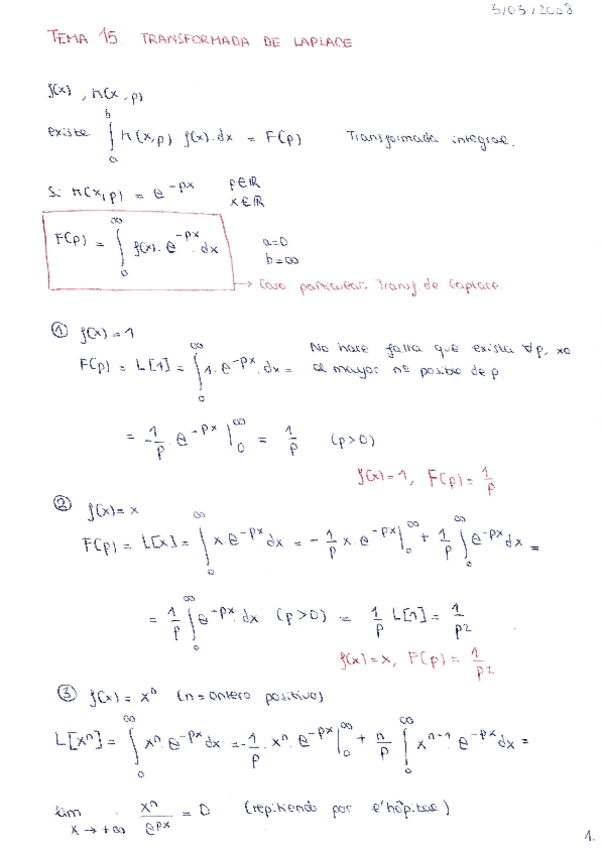 5/05/2008
TEMA 15. TRANSFORMADA DE LAPLACE
f(x), K(x,p)
existe ∫_a^b K(x,p) f(x) dx = F(p) Transformada integral.
Si K(x,p) = e^{-px} p∈ℝ x∈ℝ
F(p) = ∫_0^∞ f(x) · e^{-px} dx a=0 b=∞
→ Caso particular. Transf de Laplace.
① f(x) = 1
F(p) = L[1] = ∫_0^∞ 1 · e^{-px} dx = No hace falta que exista ∀p, xo
el mayor nº posible de p.
= -1/p · e^{-px} |_0^∞ = 1/p (p>0)
f(x)=1, F(p) = 1/p
② f(x) = x
F(p) = L[x] = ∫_0^∞ x e^{-px} dx = -1/p x e^{-px} |_0^∞ + 1/p ∫_0^∞ e^{-px} dx =
= 1/p ∫_0^∞ e^{-px} dx (p>0) = 1/p L[1] = 1/p²
f(x) = x, F(p) = 1/p²
③ f(x) = xⁿ (n = entero positivo)
L[xⁿ] = ∫_0^∞ xⁿ e^{-px} dx = -1/p · xⁿ · e^{-px} |_0^∞ + n/p ∫_0^∞ x^{n-1} · e^{-px} dx =
lim_{x→+∞} xⁿ/e^{px} = 0 (repitiendo por l'hôpital)
1.